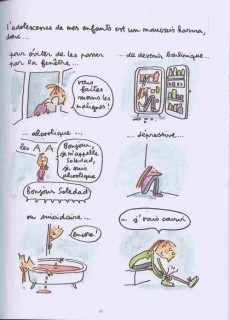 L'adolescence de mes enfants est un mauvais karma,
donc...
pour éviter de les passer
par la fenêtre...
vous
faites
moins les
malignes!
... de devenir boulimique...
... alcoolique ...
les AA
Bonjour,
je m'appelle
Soledad,
je suis
alcoolique
Bonjour Soledad!
... dépressive...
ou suicidaire ...
encore!
... j'vais courir